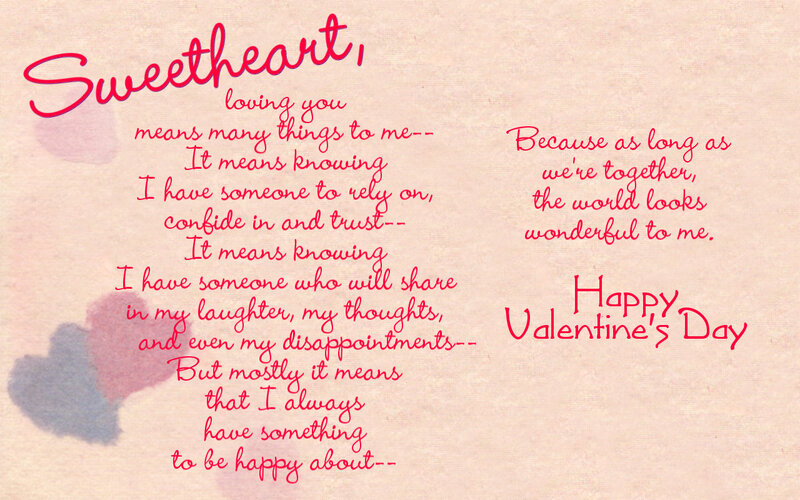 Sweetheart,
loving you
means many things to me--
It means knowing
I have someone to rely on,
confide in and trust--
It means knowing
I have someone who will share
in my laughter, my thoughts,
and even my disappointments--
But mostly it means
that I always
have something
to be happy about--
Because as long as
we're together,
the world looks
wonderful to me.
Happy
Valentine's Day